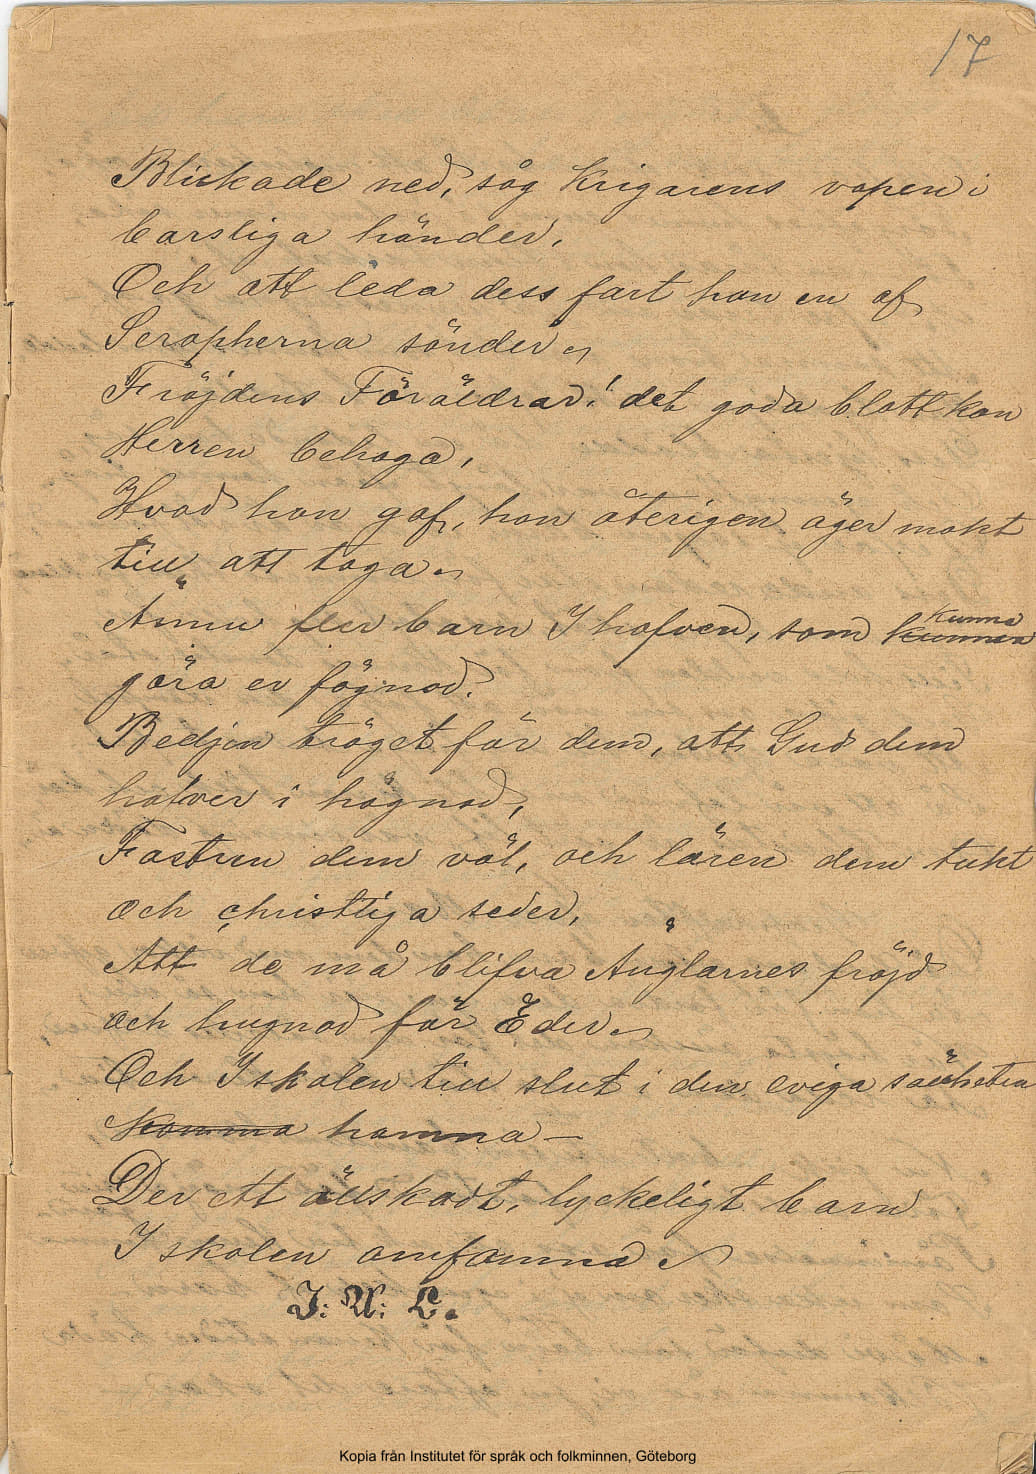 17
Blickade ned, såg Krigarens vapen i
barsliga händer,
Och att leda dess fart han en af
Serapherna sänder.
Fröjdens Föräldrar! det goda blott kan
Herren behaga,
Hvad han gaf, han återigen äger makt
till att taga.
Ännu fler barn I hafven, som kunna
kunnen
göra er fägnad.
Bedjen tröget för dem, att Gud dem
hafver i hägnad,
Fostren dem väl, och lären dem tukt
och christliga seder,
Att de må blifva Änglarnes fröjd
och hugnad för Eder.
Och I skolen till slut i den eviga sällheten
komma hamna —
Der ett älskadt, lyckeligt barn
I skolen omfamna.
J: U: L.
Kopia från Institutet för språk och folkminnen, Göteborg